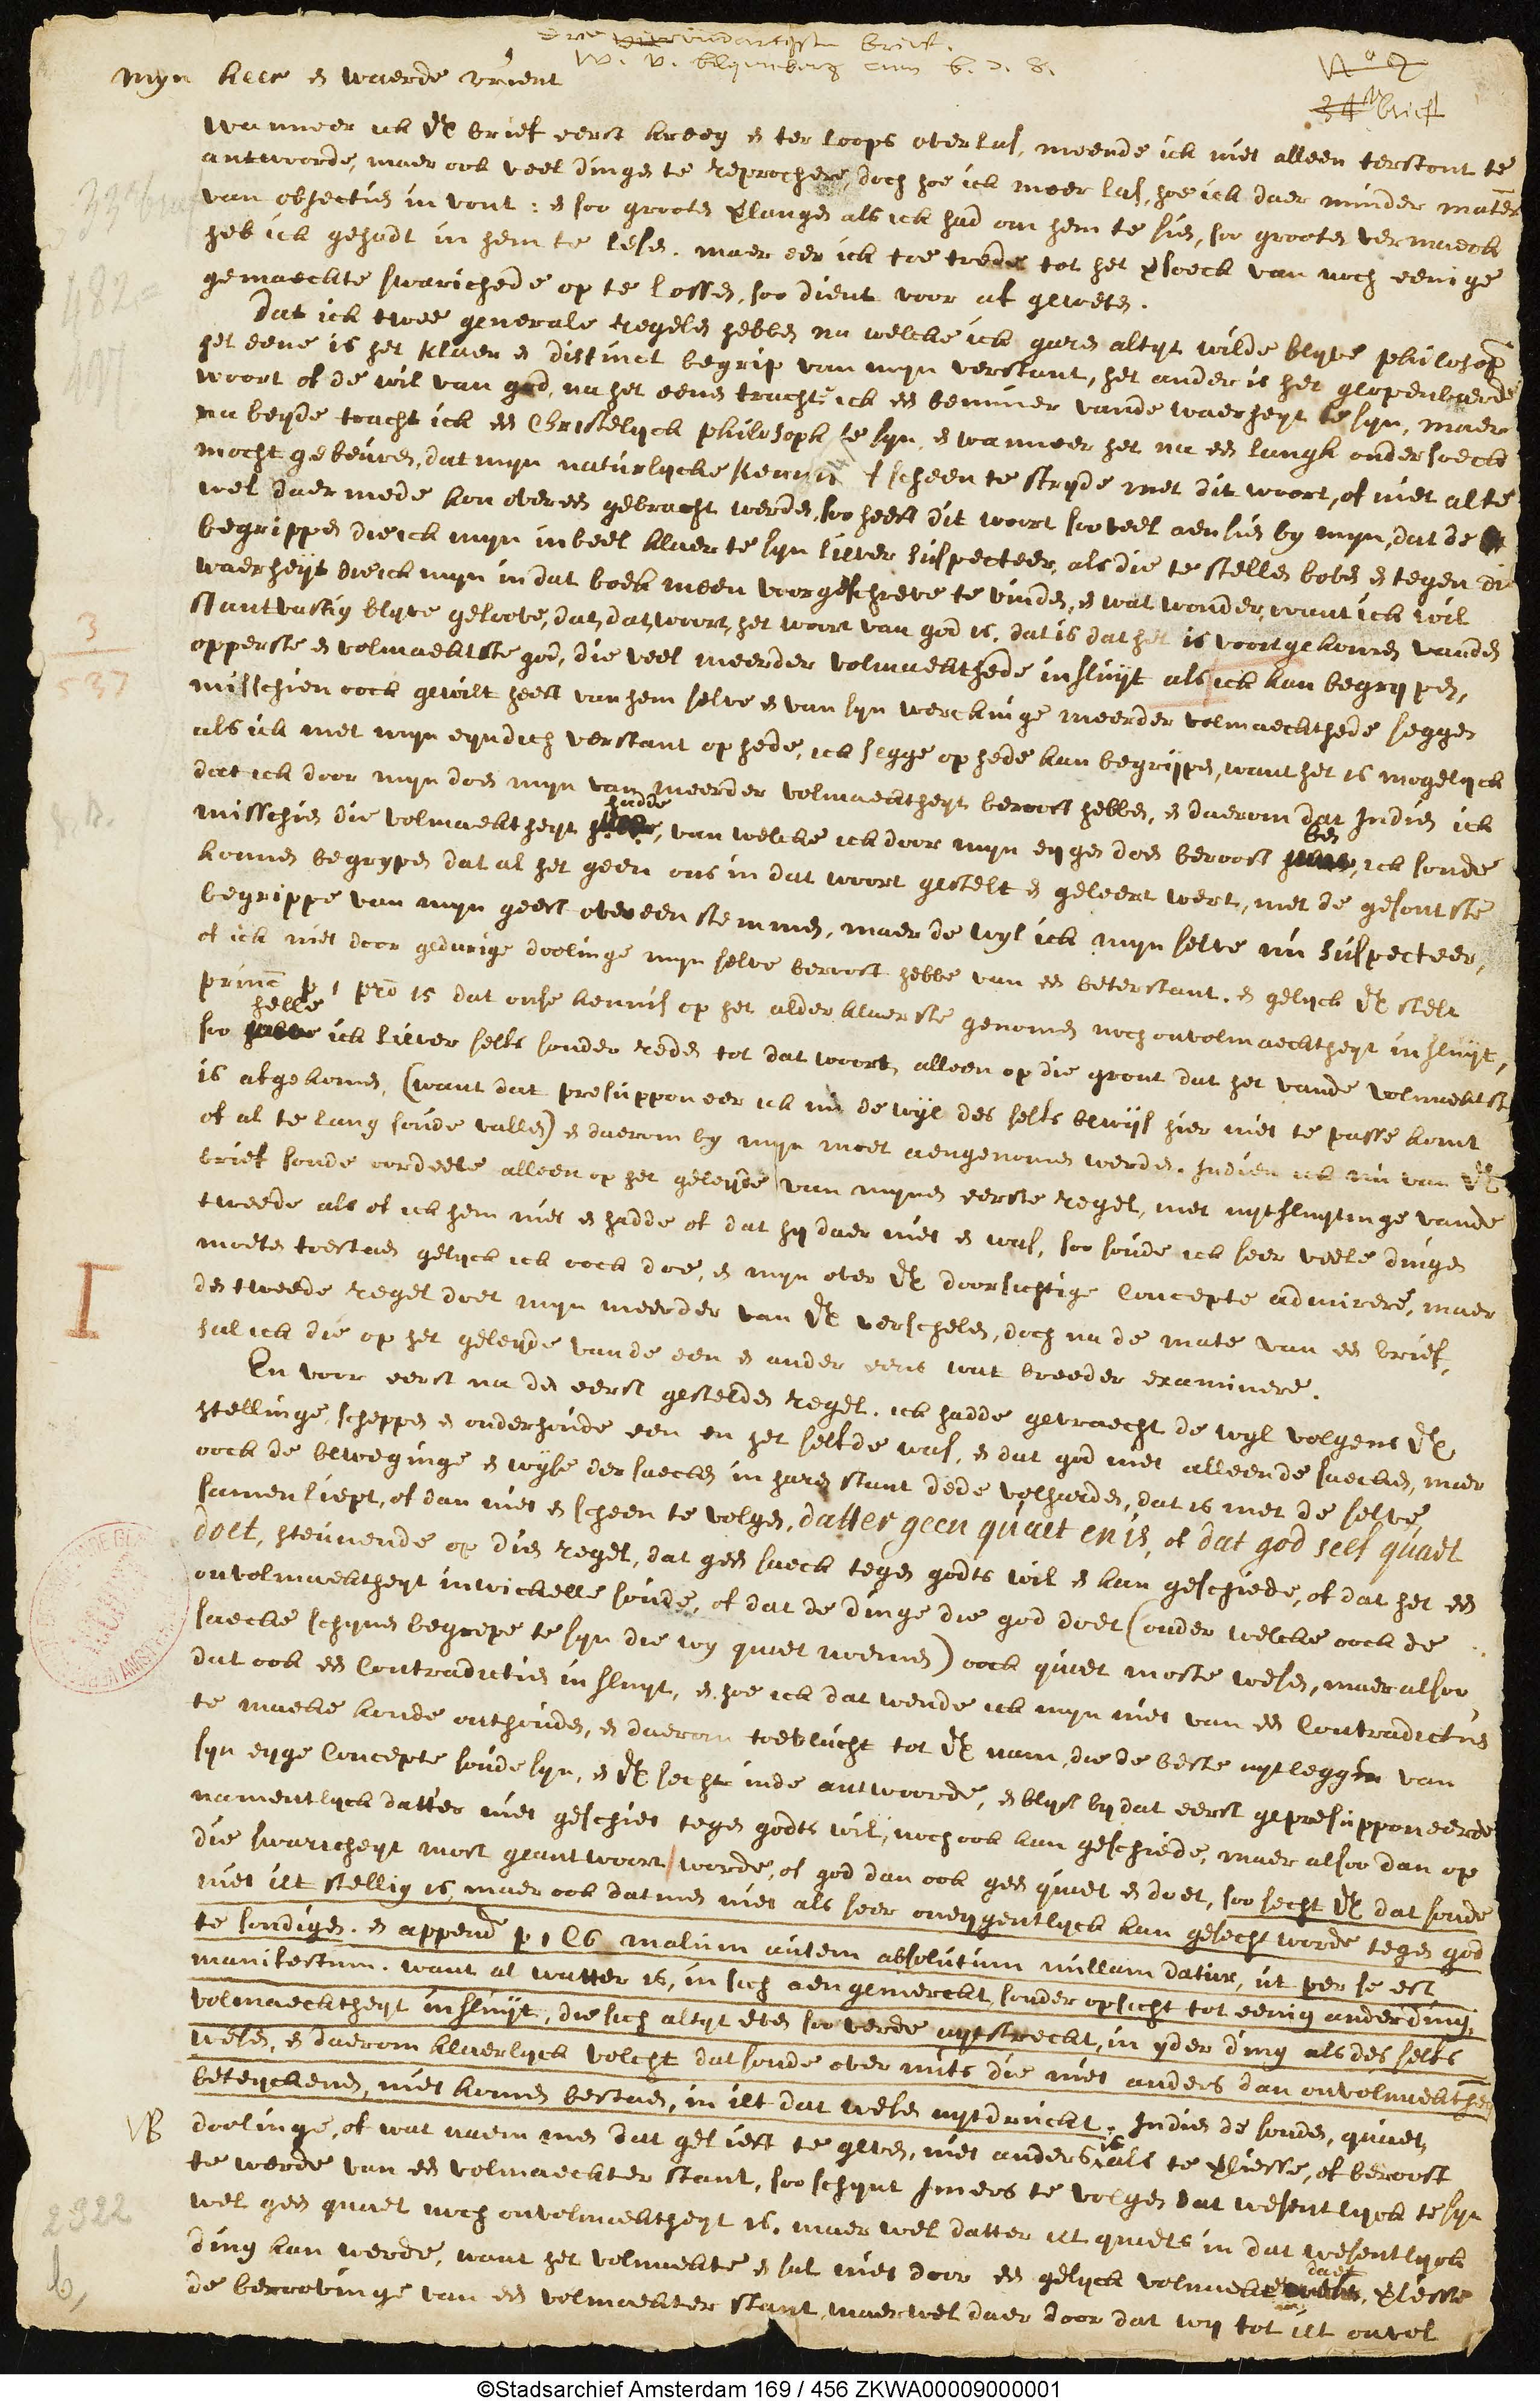 Drie vierendartigste brief.
W. v. Blyenberg aan B. D. S.
N° 2
34ste brief
Myn heer en waerde vrient
Wanneer ick UE brief eerst kreeg en ter loops overlas, meende ick niet alleen terstont te
antwoorde, maer ook veel dingen te reprochere, doch hoe ick meer las, hoe ick daer minder materi
van objectien in vont: en soo grooten verlangen als ick had om hem te sien, soo grooten vermaeck
heb ick gehadt in hem te lesen. maer eer ick toe trede tot het versoeck van noch eenige
gemaeckte swarichede op te lossen, soo dient voor af geweten.
Dat ick twee generale regelen hebben na welcke ick garen altyt wilde blyve philosoph
het eene is het klaer en distinct begrip van myn verstant, het ander is het geopenbaerde
woort of de wil van god, na het eenen trachte ick een beminner vande waerheyt te syn, maer
na beyde tracht ick een Christelyck philosoph te syn, en wanneer het na een langh ondersoeck
mocht gebeuren, dat myn naturlycke kennis scheen te stryde met dit woort, of niet al te
wel daer mede kon over een gebracht werden, soo heeft dit woort soo veel aensien by myn, dat de
begrippen die ick myn inbeel klaer te syn liever suspecteer, als die te stellen boven en tegen die
waerheyt die ick myn in dat boek meen voorgeschreve te vinden, en wat wonder, want ick wil
stantvastig blyve geloove, dat, dat woort, het woort van god is. dat is dat het is voortgekomen vanden
opperste en volmaektste god, die veel meerder volmaekthede insluyt als ick kan begrypen,
misschien oock gewilt heeft van hem selve en van syn werckinge meerder volmaeckthede seggen
als ick met myn eyndich verstant op hede, ick segge op hede kan begrypen, want het is mogelyck
dat ick door myn doen myn van meerder volmaektheyt berooft hebben, en daerom dat Indien ick
misschien die volmaektheyt hadde, van welcke ick door myn eygen doen berooft ben, ick soude
konnen begrypen dat al het geen ons in dat woort gestelt en geleert wert, met de gesontste
begrippe van myn geest over een stemmen, maer de wyl ick myn selve nu suspecteer,
of ick niet door gedurige doolinge myn selve berooft hebbe van een beter stant. en gelyck UE stelt
princ p 1 prd 15 dat onse kennis op het alder klaerste genomen noch onvolmaecktheyt insluyt,
soo helle ick liever selfs sonder reden tot dat woort, alleen op die gront dat het vande volmaektst
is afgekomen, (want dat presupponeer ick nu de wyl des selfs bewys hier niet te passe komt
of al te lang soude vallen) en daerom by myn moet aengenomen werden. Indien ick nu van UE
brief soude oordeele alleen op het geleyde van mynen eerste regel, met uytsluytinge vande
tweede als of ick hem niet en hadde of dat hy daer niet en was, soo soude ick seer veele dingen
moeten toestaen gelyck ick oock doe, en myn over UE doorsichtige Concepte admirere, maer
de tweede regel doet myn meerder van UE verschelen, doch na de mate van een brief,
sal ick die op het geleyde vande een en ander eens wat breeder examinere.
En voor eerst na den eerst gestelden regel. ick hadde gevraecht de wyl volgens UE
stellinge, scheppen en onderhoude een en het selfde was, en dat god niet alleen de saecken, maer
oock de beweginge en wyse der saecken in haren stant dede volharden, dat is met de selve
samen liept, of dan niet en scheen te volgen, datter geen quaet en is, of dat god self quaet
doet, steunende op dien regel, dat geen saeck tegen godts wil en kan geschiede, of dat het een
onvolmaektheyt inwickelle soude, of dat de dinge die god doet (onder welcke oock de
saecke schynen begrepe te syn die wy quaet noemen) oock quaet moste wesen, maer alsoo
dat ook een Contradictien insluyt, en hoe ick dat wende ick myn niet van een Contradictien
te maeke konde onthouden, en daerom toevlucht tot UE nam, die de beste uytlegger van
syn eyge Concepte soude syn, en UE secht inde antwoorde, en blyft by dat eerst gepresupponeerde
namentlyck datter niet geschiet tegen godts wil, noch ook kan geschiede, maer alsoo dan op
die swaricheyt most geantwoort worde, of god dan ook geen quaet en doet, soo secht UE dat sonde
niet iet stellig is, maer ook dat men niet als seer oneygentlyck kan gesecht worde tegen god
te sondigen. en append p 1 C6 malum autem absolutum nullum datur, ut per se est
manifestum. want al watter is, in sich aengemerckt, sonder opsicht tot eenig ander ding
volmaecktheyt insluyt, die sich altyt even soo verde uytstreckt, in yder ding als des selfs
wesen, en daerom klaerlyck volcht dat sonde over mits die niet anders dan onvolmaektheyt
beteyckenen, niet konnen bestaen, in iet dat wesen uytdruckt. Indien de sonden, quaet,
NB
doolinge, of wat naem men dat gelieft te geven, niet anders is als te verliesse, of berooft
te werde van een volmaeckter stant, soo schynt Immers te volgen dat wesentlyck te syn
wel geen quaet noch onvolmaektheyt is, maer wel datter iet quaets in dat wesentlyck
ding kan werde, want het volmaekte en sal niet door een gelyck volmaekte daet, verlesse
de beroovinge van een volmaekter stant, maer wel daer door dat wy tot iet onvol
482
3
537
I
2922
b,
©Stadsarchief Amsterdam 169 / 456 ZKWA00009000001